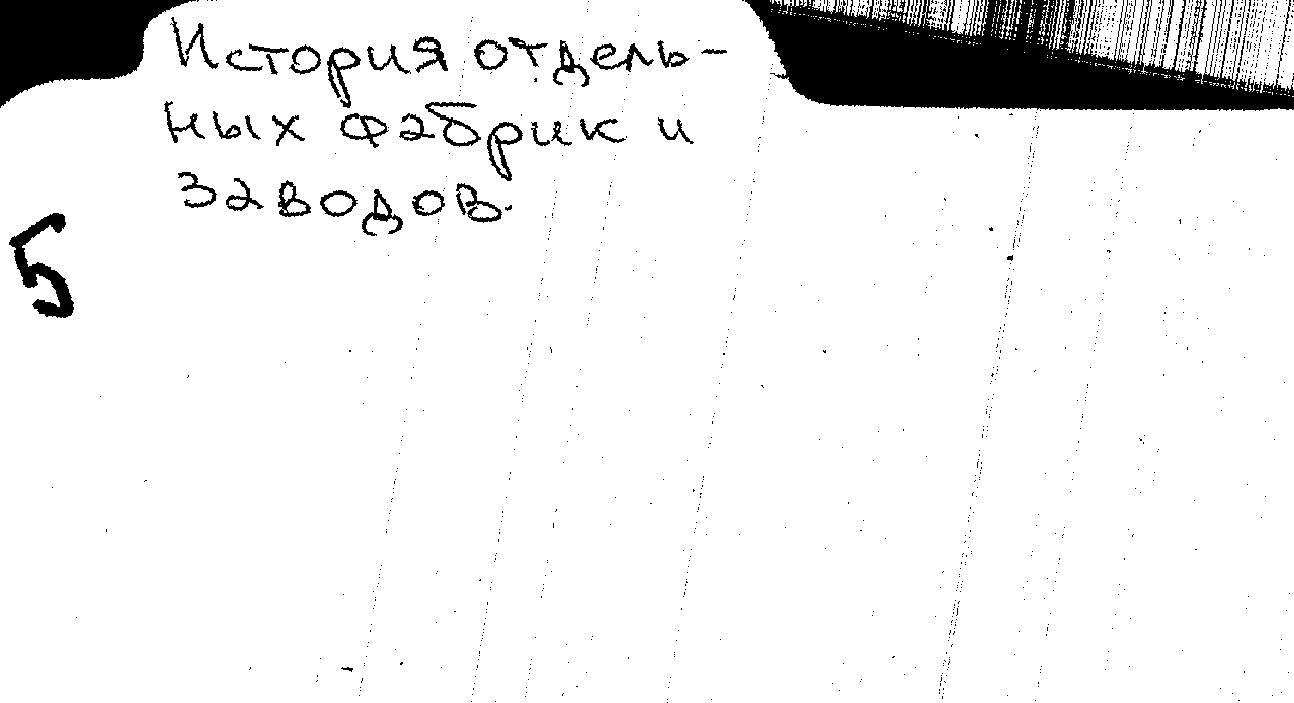 История отдель-
ных фабрик и
заводов.
5